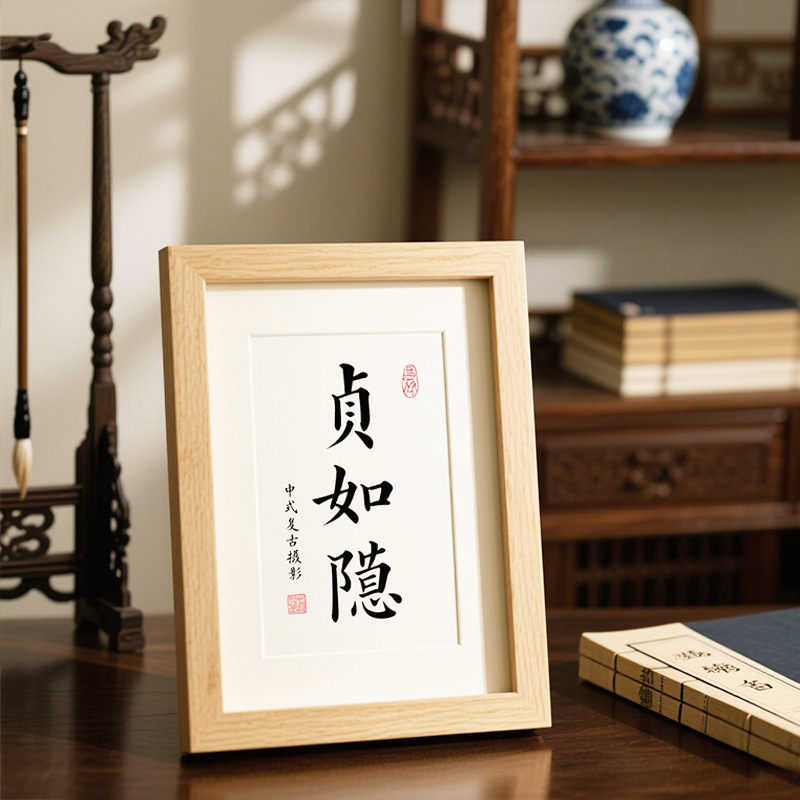 貞如隱
中式复古摄影